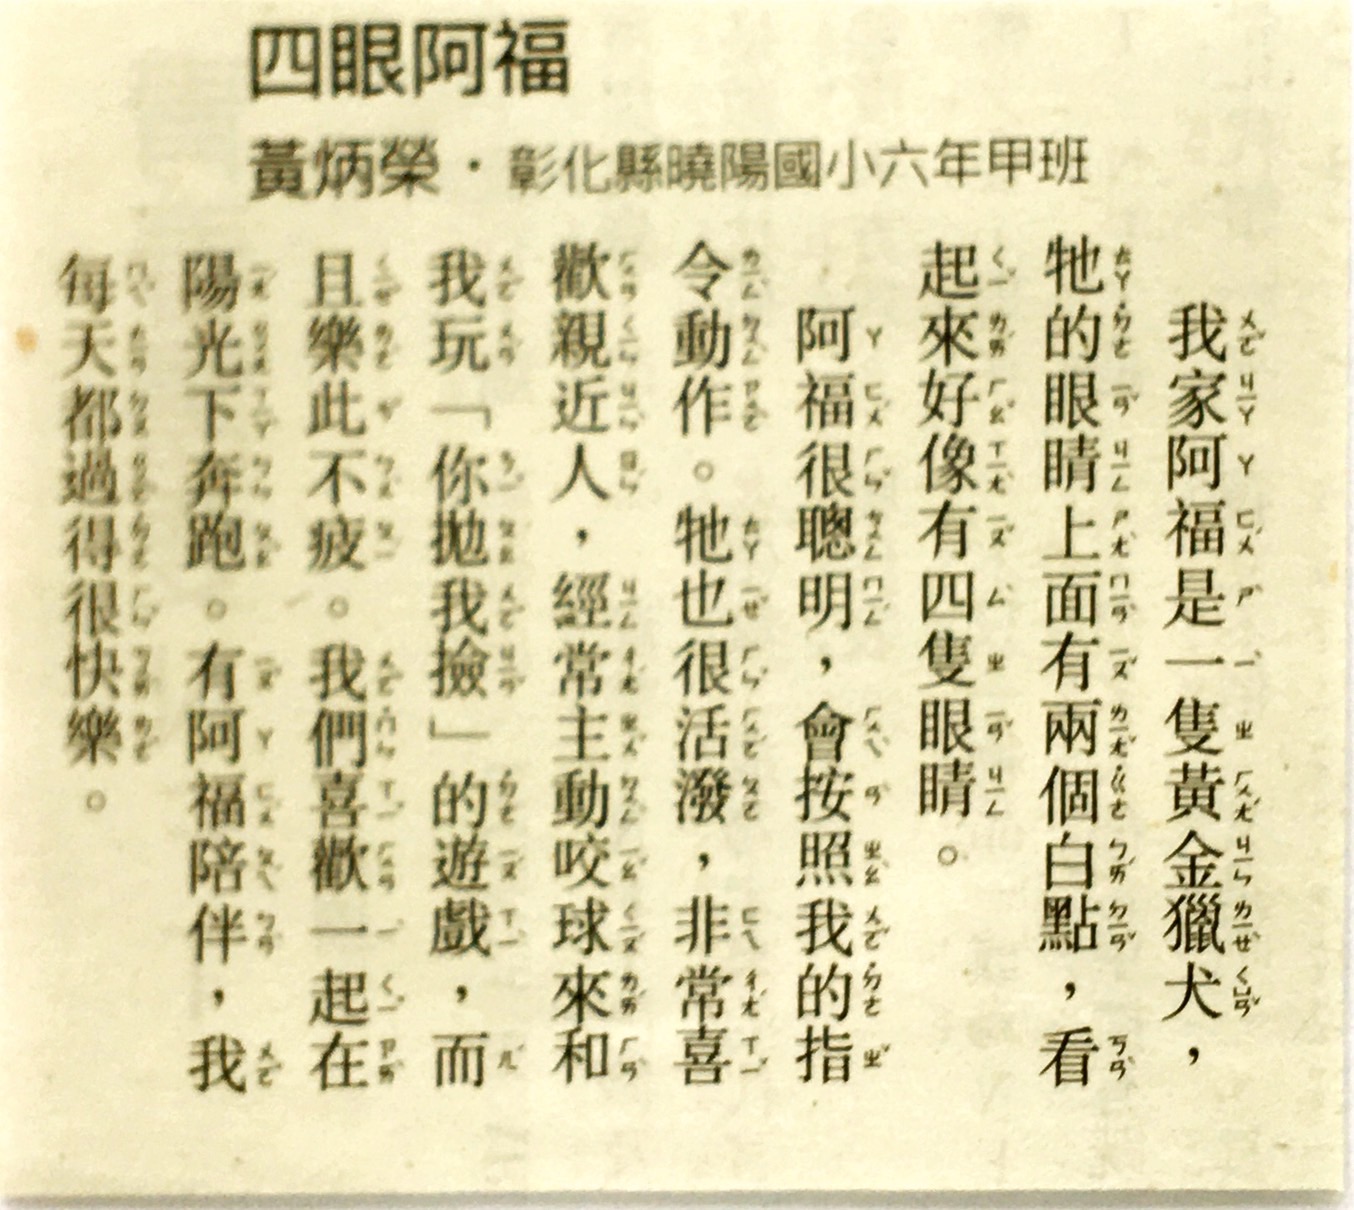 四眼阿福
黃炳榮・彰化縣曉陽國小六年甲班
我家阿福是一隻黃金獵犬，
牠的眼睛上面有兩個白點，看
起來好像有四隻眼睛。
阿福很聰明，會按照我的指
令動作。牠也很活潑，非常喜
歡親近人，經常主動咬球來和
我玩「你拋我撿」的遊戲，而
且樂此不疲。我們喜歡一起在
陽光下奔跑。有阿福陪伴，我
每天都過得很快樂。